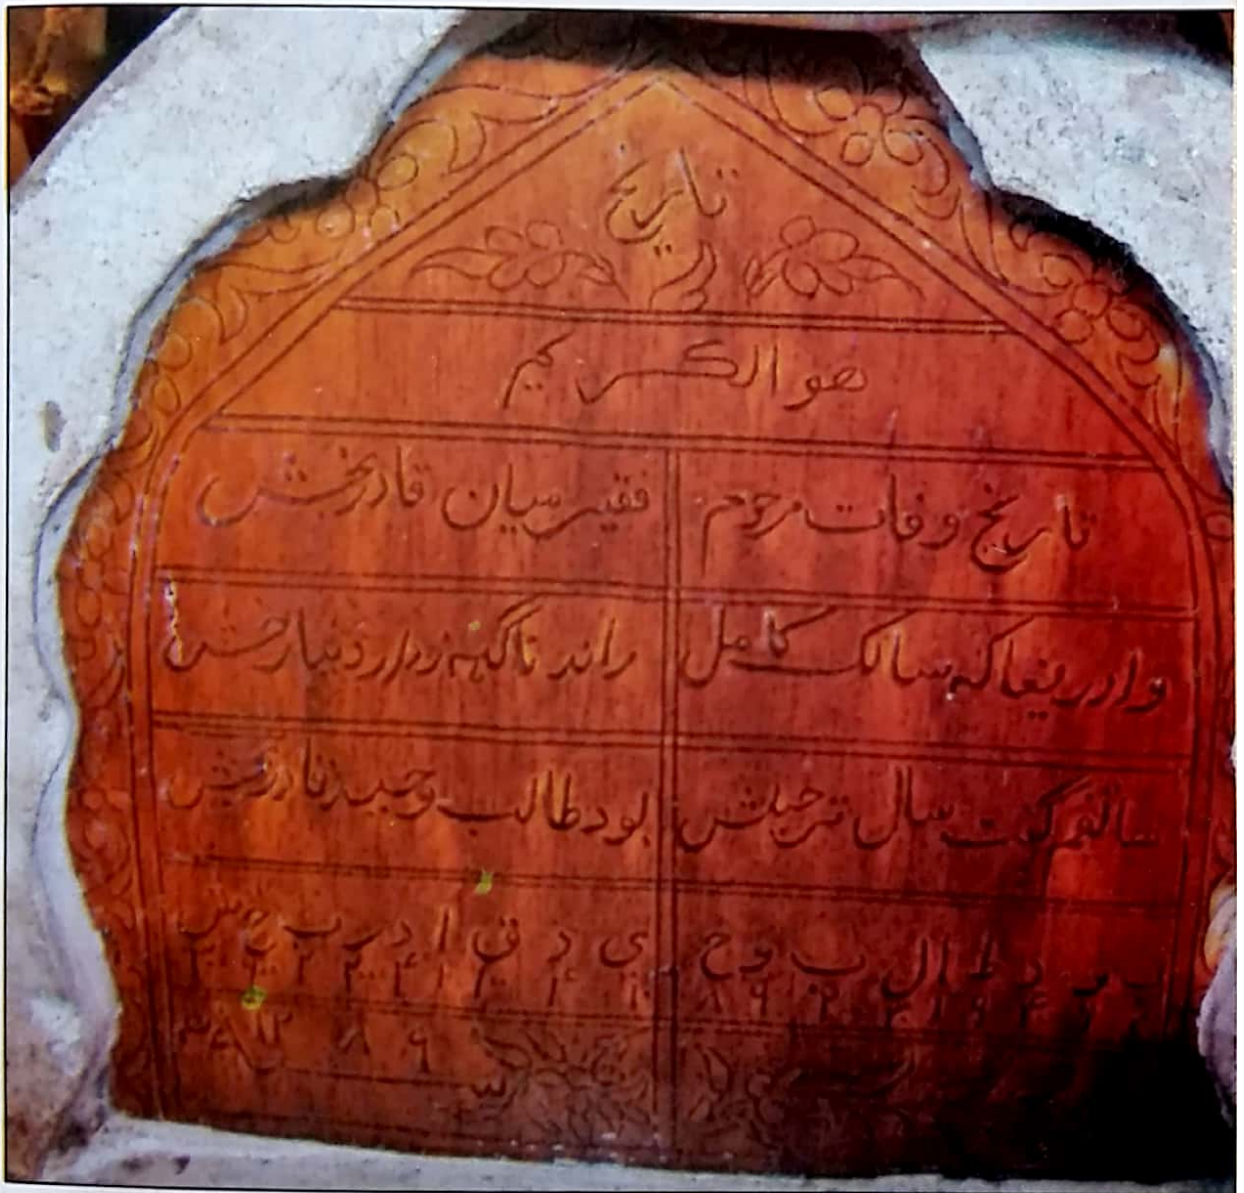 تاریخ
هو الکریم
تاریخ وفات مرحوم فقیر میان قادربخش
وا دریغا که سالک کامل راند ناگہ ز دار دنیا رخش
هاتفم گفت سال ترحیلش بود طالب وحید قادربخش
ب و د ط ا ل ب و ح ی د ق ا د ر ب خ ش